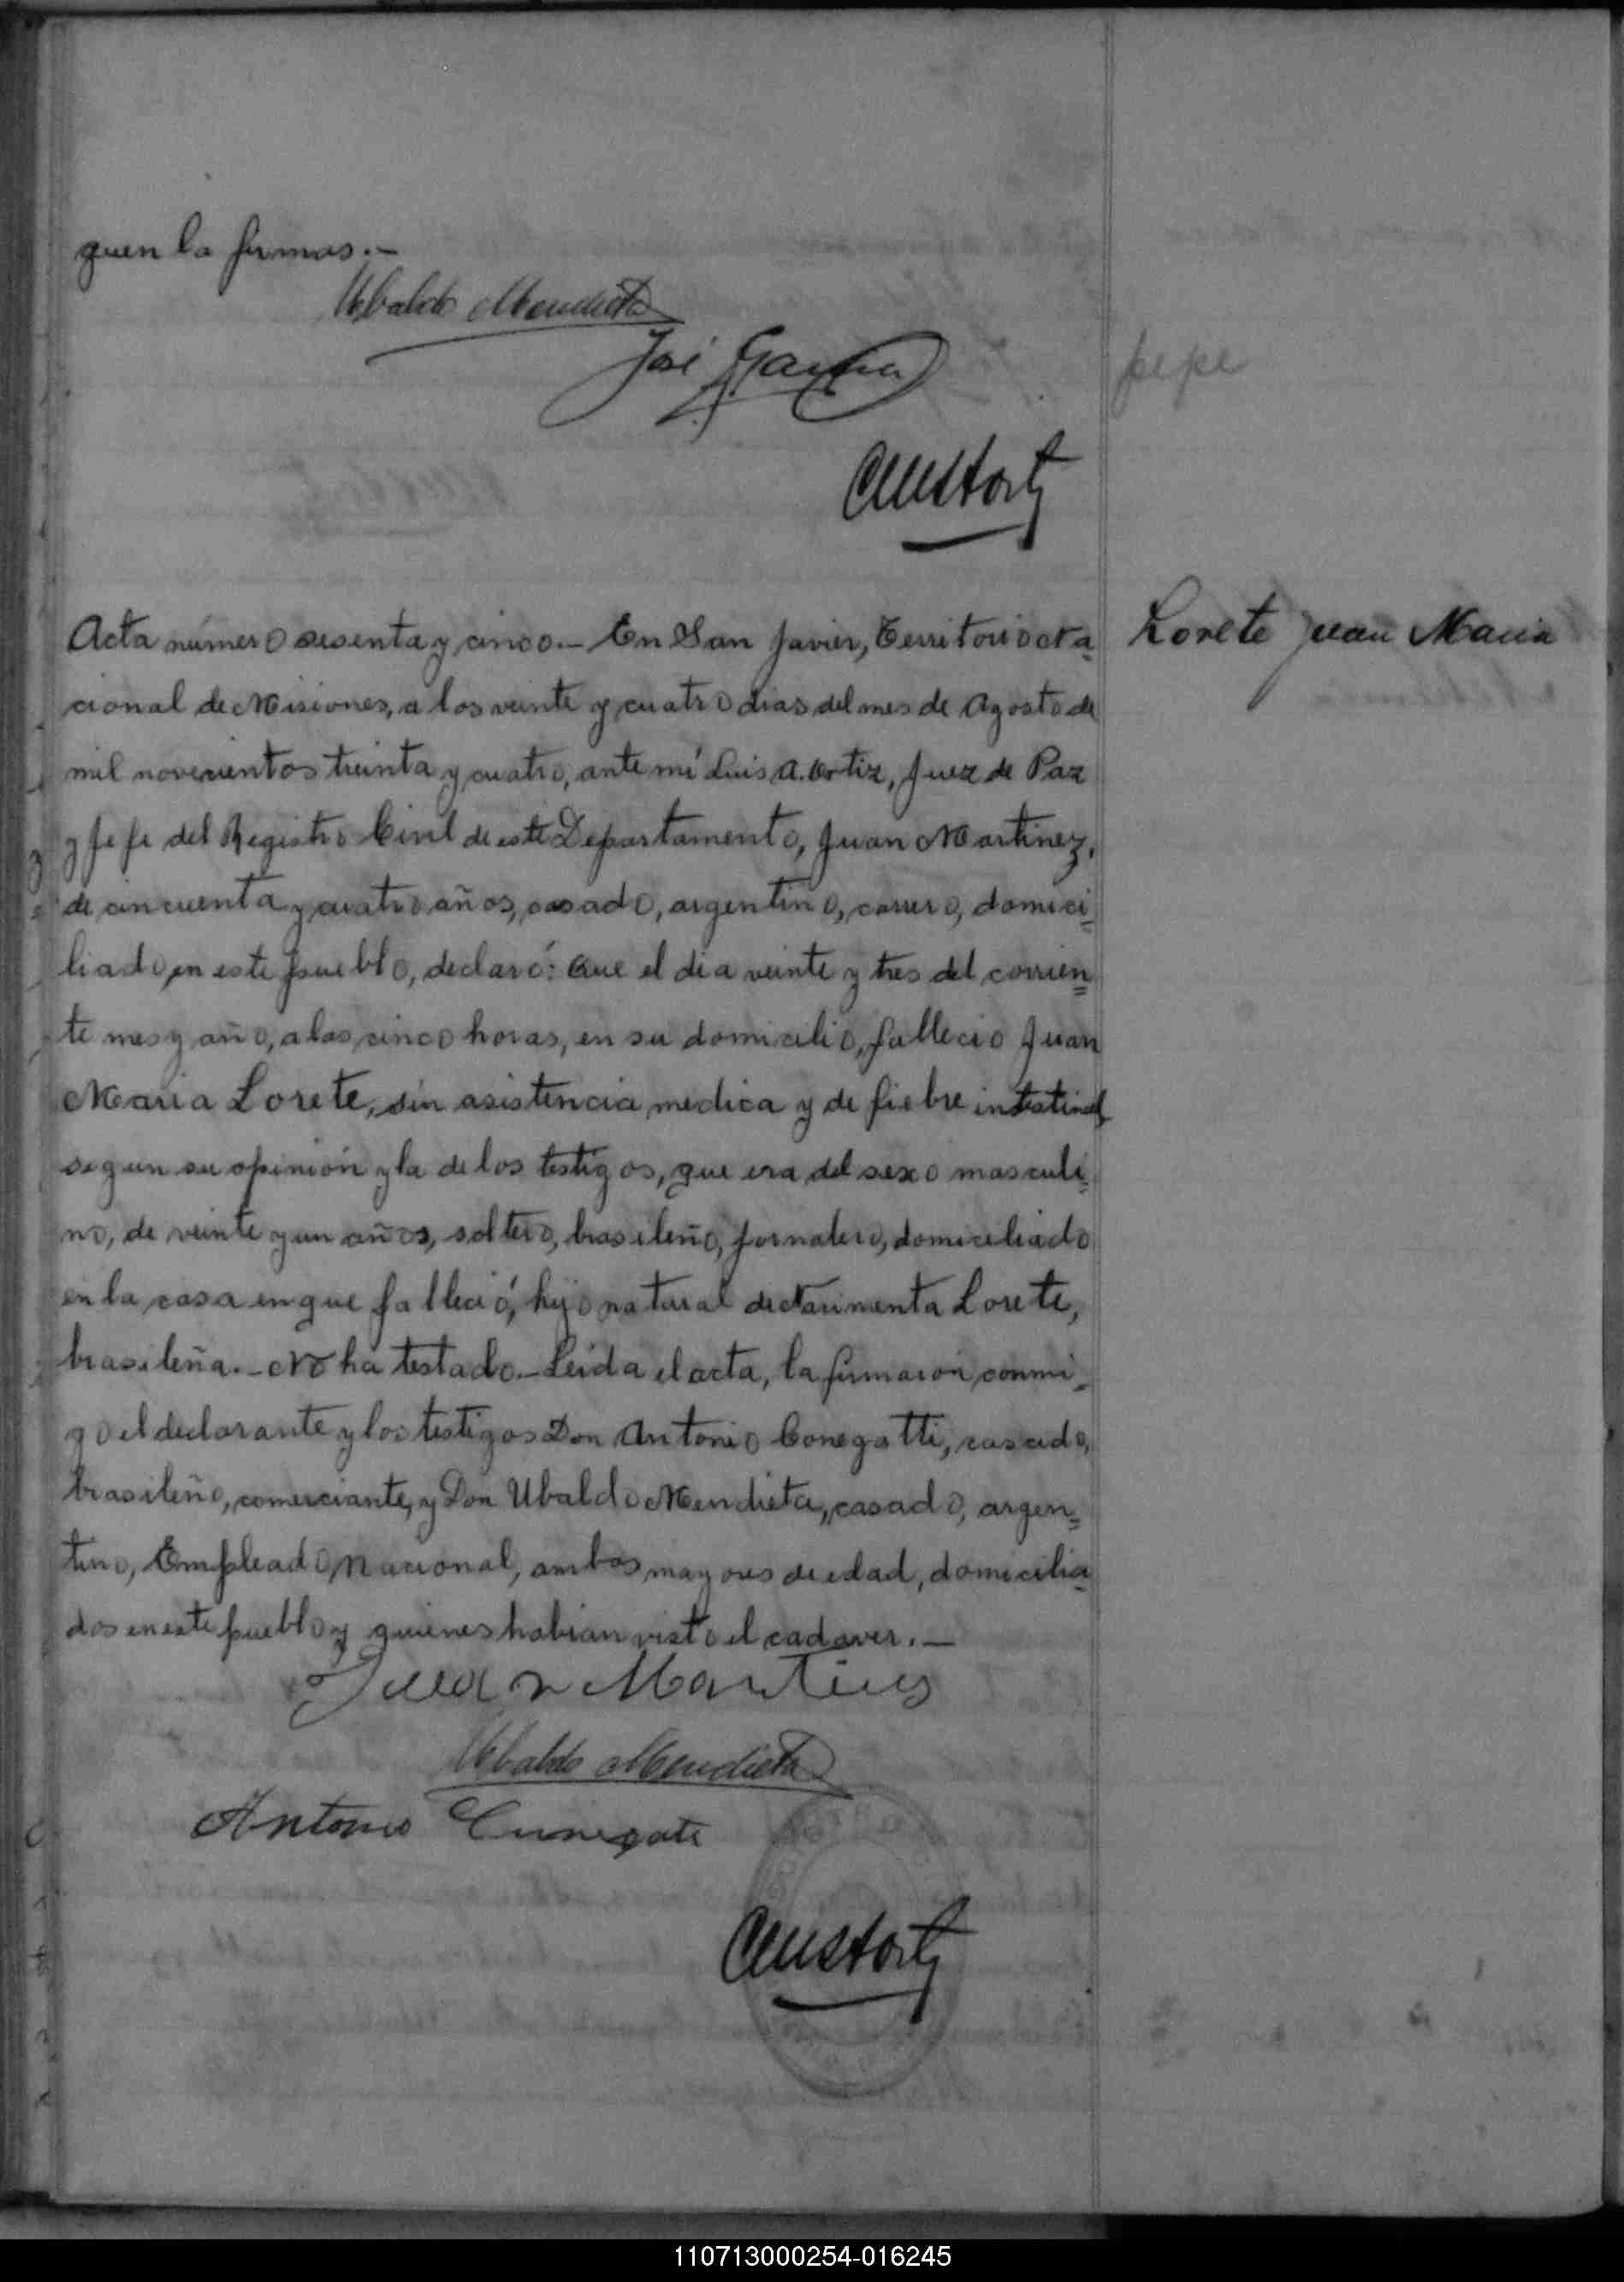 quen la firmas.-
Ubaldo Mendieta
José García
pepe
Acta número sesenta y cinco.- En San Javier, Territorio Na-
Lorete Juan Maria
cional de Misiones, a los veinte y cuatro dias del mes de Agosto de
mil novecientos treinta y cuatro, ante mí Luis A. Ortiz, Juez de Paz
y Jefe del Registro Civil de este Departamento, Juan Martinez,
de cincuenta y cuatro años, casado, argentino, carrero, domici-
liado en este pueblo, declaró: Que el dia veinte y tres del corrien=
te mes y año, a las cinco horas, en su domicilio, fallecio Juan
Maria Lorete, sin asistencia medica y de fiebre intestinal
segun su opinión y la de los testigos, que era del sexo masculi=
no, de veinte y un años, soltero, brasileño, jornalero, domiciliado
en la casa en que falleció, hijo natural de Lorete,
brasileña.- No ha testado.- Leida el acta, la firmaron conmi-
go el declarante y los testigos Don Antonio Conegatti, casado,
brasileño, comerciante, y Don Ubaldo Mendieta, casado, argen=
tino, Empleado Nacional, ambos mayores de edad, domicilia-
dos en este pueblo y quienes habian visto el cadaver.-
Juan Martines
Ubaldo Mendieta
Antonio Cunegate
110713000254-016245